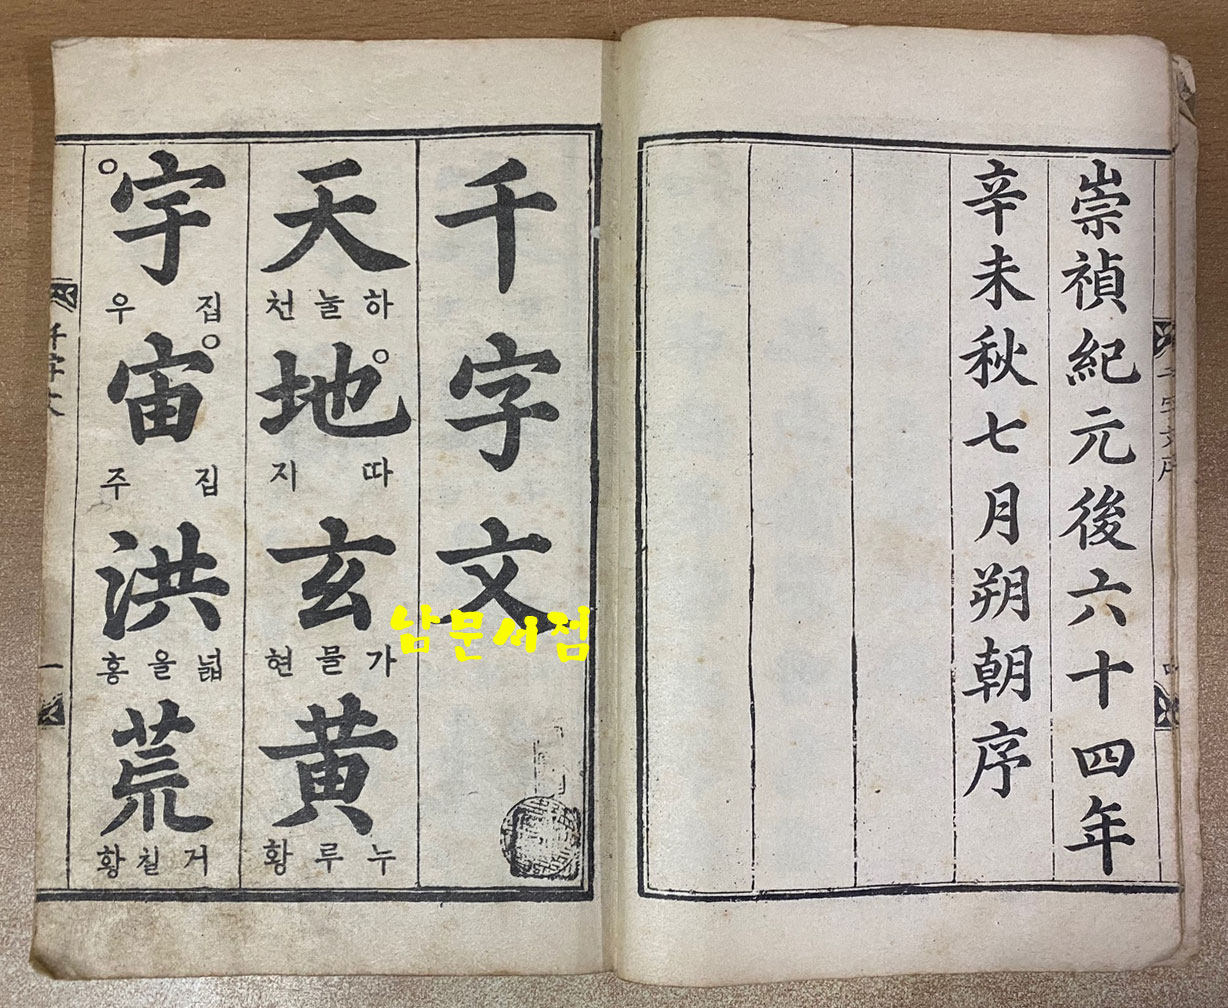 崇禎紀元後六十四年
辛未秋七月朔朝序
千字文
天 하눌천
地 따지
玄 가믈현
黄 누루황
宇 집우
宙 집주
洪 넓을홍
荒 거칠황
남문서점